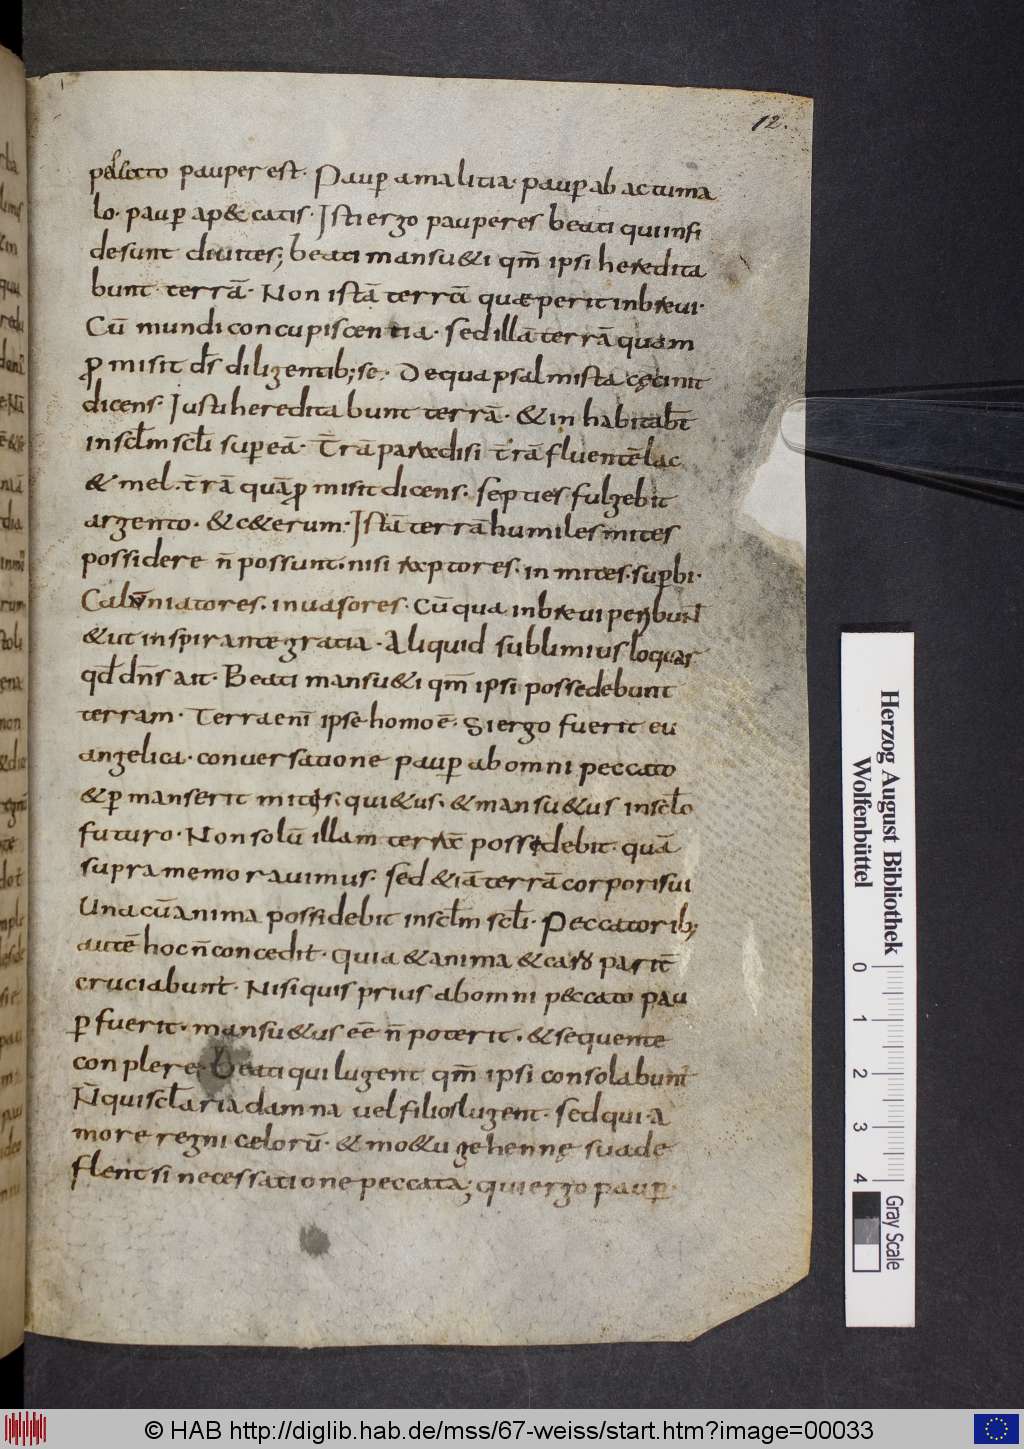 12.
pauper est· Paup̄ a malitia· paup̄ ab actu ma
lo· paup̄ a p&catis· Isti ergo pauperes beati qui in fi
de sunt divites; beati mansu&i qm̄ ipsi heredita
bunt terrā· Non istā terrā quae perit in brevi·
Cū mundi concupiscentia· sed illā terrā quam
ꝓmisit d̄s diligentib; se· De qua psalmista cęcinit
dicens· Iusti hereditabunt terrā· & inhabitab̄t
in scl̄m scl̄i sup eā· T̄rā paradisi t̄rā fluentē lac
& mel· t̄rā quā ꝓmisit dicens· septies fulgebit
argento· & c&erum· Istā terrā humiles mites
possidere n̄ possunt· nisi raptores· inmites· supbi·
Calūniatores· invasores· Cū qua in brevi peribunt
& ut inspirante gratia· Aliquid sublimius loquar
qd̄ dn̄s ait· Beati mansu&i qm̄ ipsi possedebunt
terram· Terra enī ipse homo ē· Si ergo fuerit eu
angelica· conversatione paup̄ ab omni peccato
& pmanserit mitis· qui&us· & mansu&us in scl̄o
futuro· Non solū illam terrā possidebit· quā
supra memoravimus· sed & iā terrā corporis sui
Una cū anima possidebit in scl̄m scl̄i· Peccatorib;
autē hoc n̄ concedit· quia & anima & caro parit̄
cruciabunt· Nisi quis prius ab omni peccato pau
p fuerit· mansu&us eē n̄ poterit· & sequente
conplere· Beati qui lugent qm̄ ipsi consolabunt
N̄ qui scl̄aria damna vel filios lugent· sed qui a
more regni cęlorū· & m&u gehennę suade
flent si necessatione peccata; qui ergo paup̄
Herzog August Bibliothek
Wolfenbüttel
0 1 2 3 4
Gray Scale
© HAB http://diglib.hab.de/mss/67-weiss/start.htm?image=00033